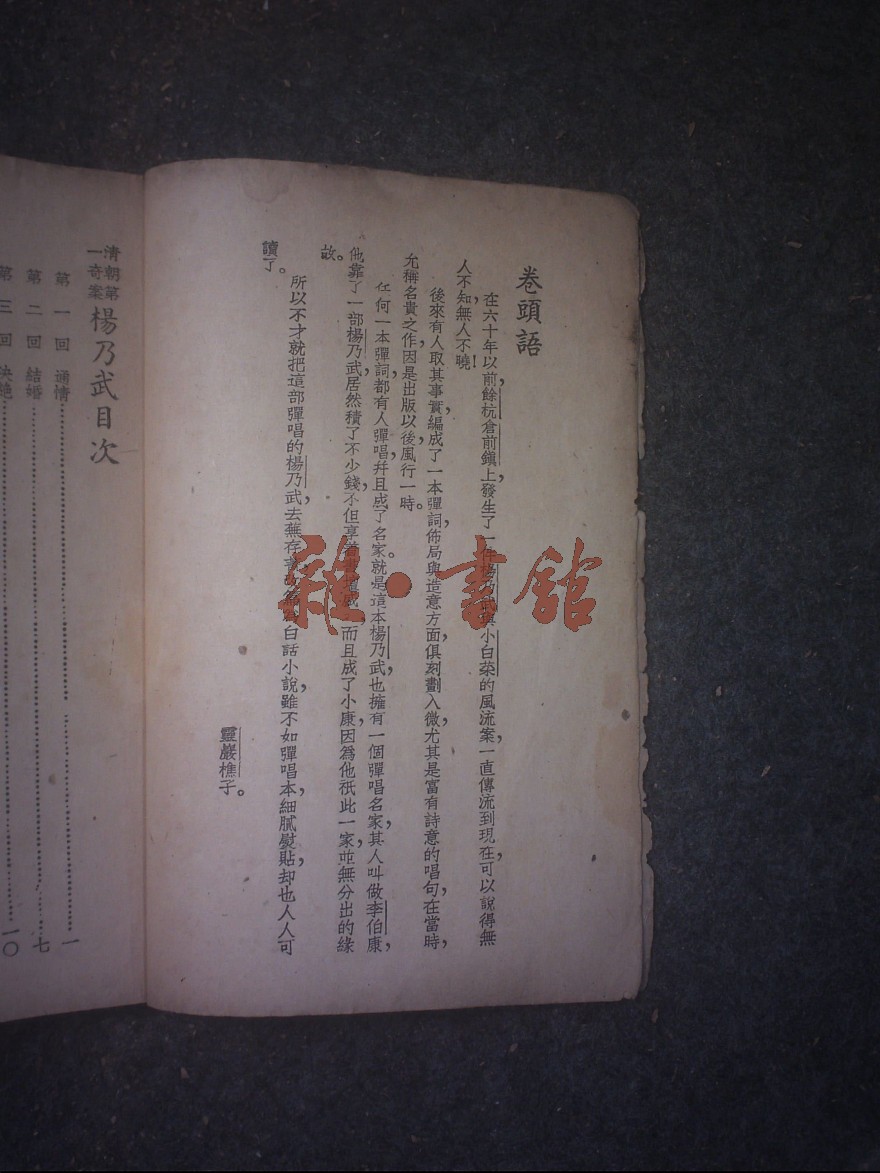 卷頭語
在六十年以前，餘杭倉前鎮上，發生了一件楊乃武與小白菜的風流案，一直傳流到現在，可以說得無
人不知，無人不曉！
後來有人取其事實，編成了一本彈詞，佈局與造意方面，俱刻劃入微，尤其是富有詩意的唱句，在當時，
允稱名貴之作，因是出版以後，風行一時。
任何一本彈詞，都有人彈唱，幷且成了名家。就是這本楊乃武，也擁有一個彈唱名家，其人叫做李伯康，
他靠了一部楊乃武，居然積了不少錢，不但享着書壇盛，而且成了小康，因爲他祇此一家，並無分出的緣
故。
所以不才就把這部彈唱的楊乃武，去蕪存菁，白話小說，雖不如彈唱本，細膩熨貼，却也人人可
讀了。
靈巖樵子。
清朝第一奇案
楊乃武目次
第一回 通情 一
第二回 結婚 七
第三回 決絕 一〇
雜·書館